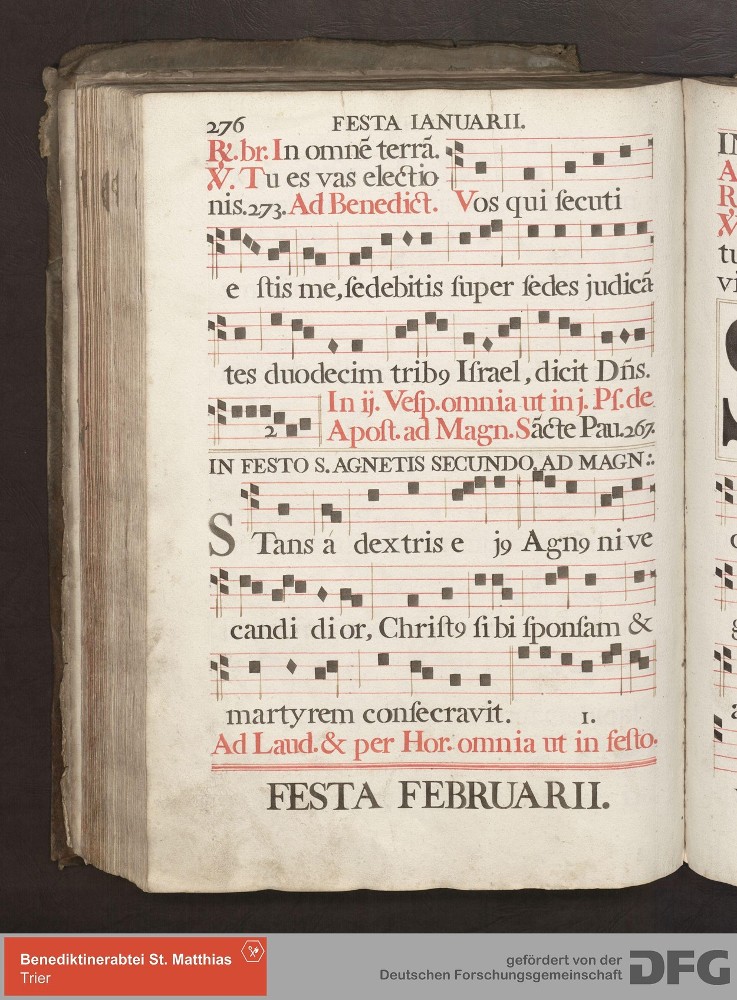 276 FESTA IANUARII.
R̸.br. In omnē terrā.
V̸. Tu es vas electio
nis.273. Ad Benedict. Vos qui ſecuti
e ſtis me, ſedebitis ſuper ſedes judicā
tes duodecim tribꝯ Iſrael, dicit Dn̄s.
2
In ij. Veſp. omnia ut in j. Pſ. de
Apoſt. ad Magn. Sācte Pau. 267.
IN FESTO S. AGNETIS SECUNDO, AD MAGN:.
STans á dextris e jꝯ Agnꝯ ni ve
candi di or, Chriſtꝯ ſi bi ſponſam &
martyrem conſecravit. 1.
Ad Laud. & per Hor. omnia ut in feſto.
FESTA FEBRUARII.
IN
A
R
V̸
tu
vi
S
Benediktinerabtei St. Matthias
Trier
gefördert von der
Deutschen Forschungsgemeinschaft
DFG